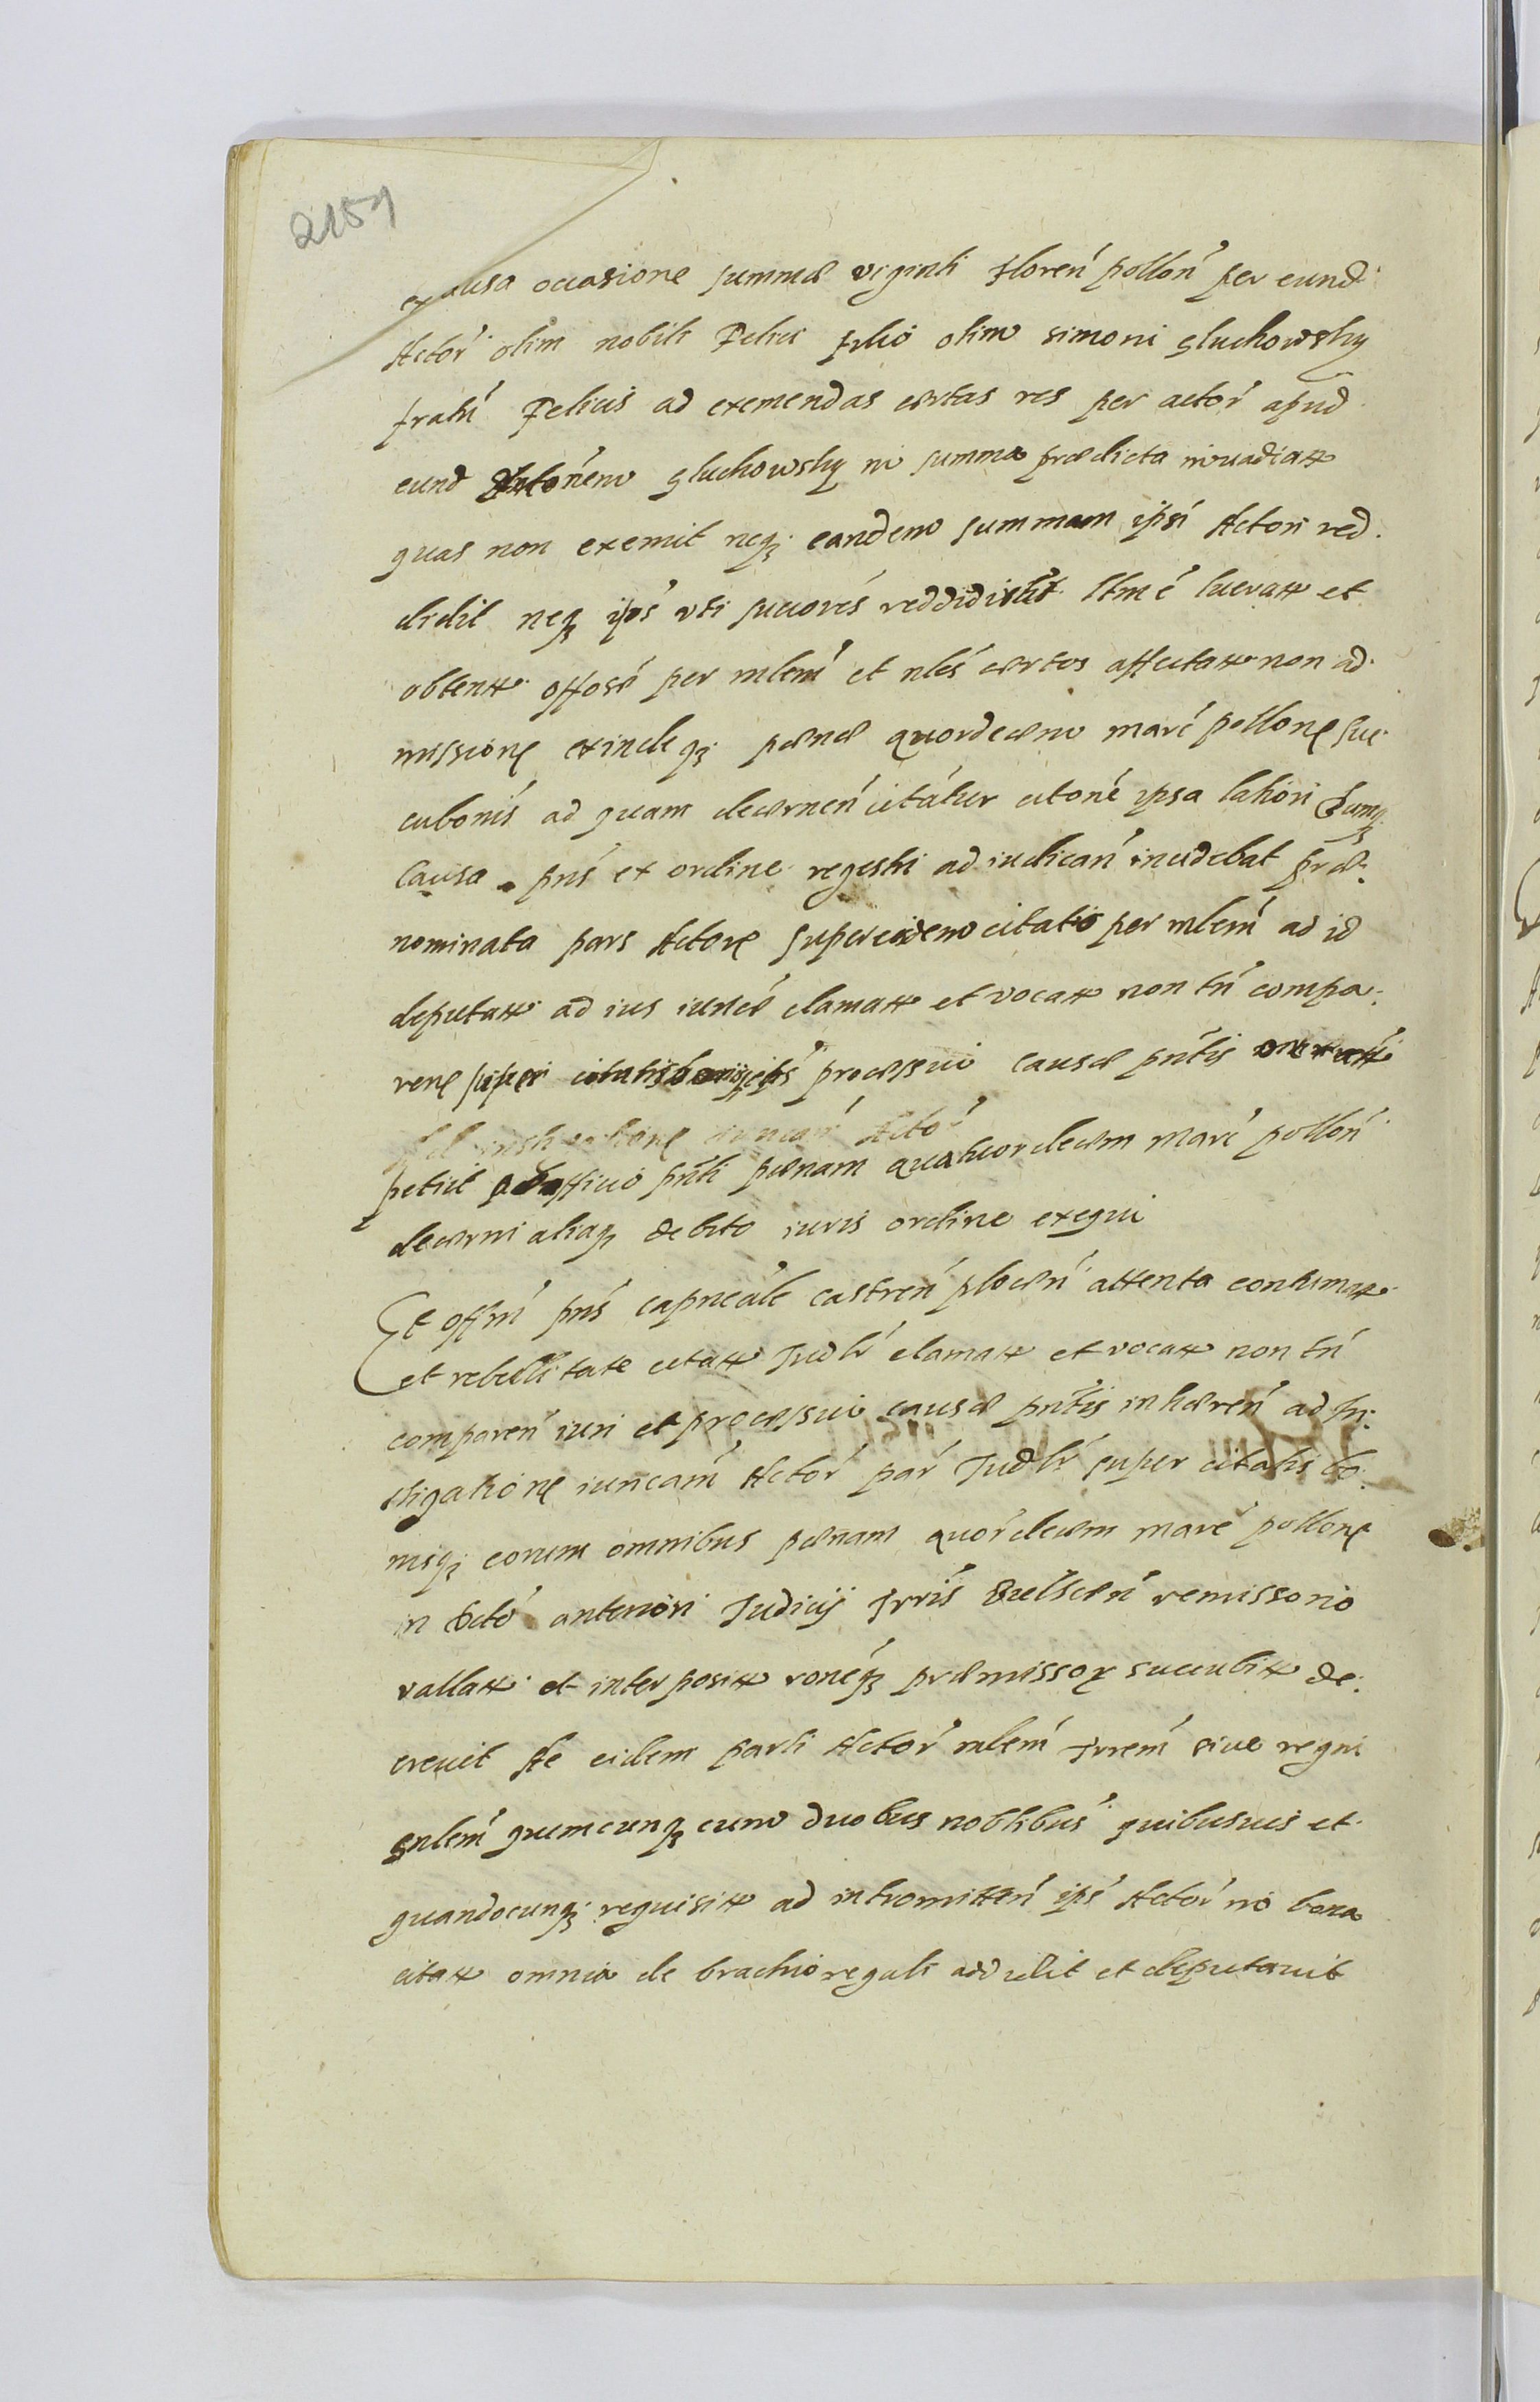 2159
ex causa occasione summæ viginti floren pollon per eund
Actor olim nobili Felici filio olim simoni gluchowsky
fratri Felicis ad exemendas certas res per actor apud
eund gluchowsky in summa prædicta invadiat
quas non exemit neq eandem summam ipsi Actori red
didit neq ips uti succores reddidistis ltmé lucrat et
obtent offosé per mlem et nles certos affectat non ad
missione exindeq pænæ quordecem marc pollone suc
cubonis ad quam decernen citatur citoné ipsa latiori Cumq
Causa pns ex ordine regestri ad iudican incidebat præ
nominata pars Actore super eadem citatio per mlem ad id
deputat ad ius clamat et vocat non tn compa
rene super citatis bonisq ips processui causæ pntis
instigatione iuncam Actor
petiit ab officio pnti pænam quatuordecem marc pollon
decerni aliaq debito iuris ordine exequi
Et offm pns capneale castren plocen attenta contumat
et rebellitate citat Judlr clamat et vocat non tn
comparen iuri et processui causæ pntis inhæren ad in
stigatione iuncam Actor par Judlr super citatis bo
nisq eorum omnibus pænam quordecem marc pollone
in dcto anteriori Judicij Trris remissorio
vallat et interposit ronéq præmissor succubit de
crevit Ac eidem parti Actor mlem Trrem sive regni
gnlem quemcunq cum duobus noblibus quibusuis et
quandocunq requisit ad intromitten ips Actor in bona
citat omnia de brachio regali addidit et deputavit